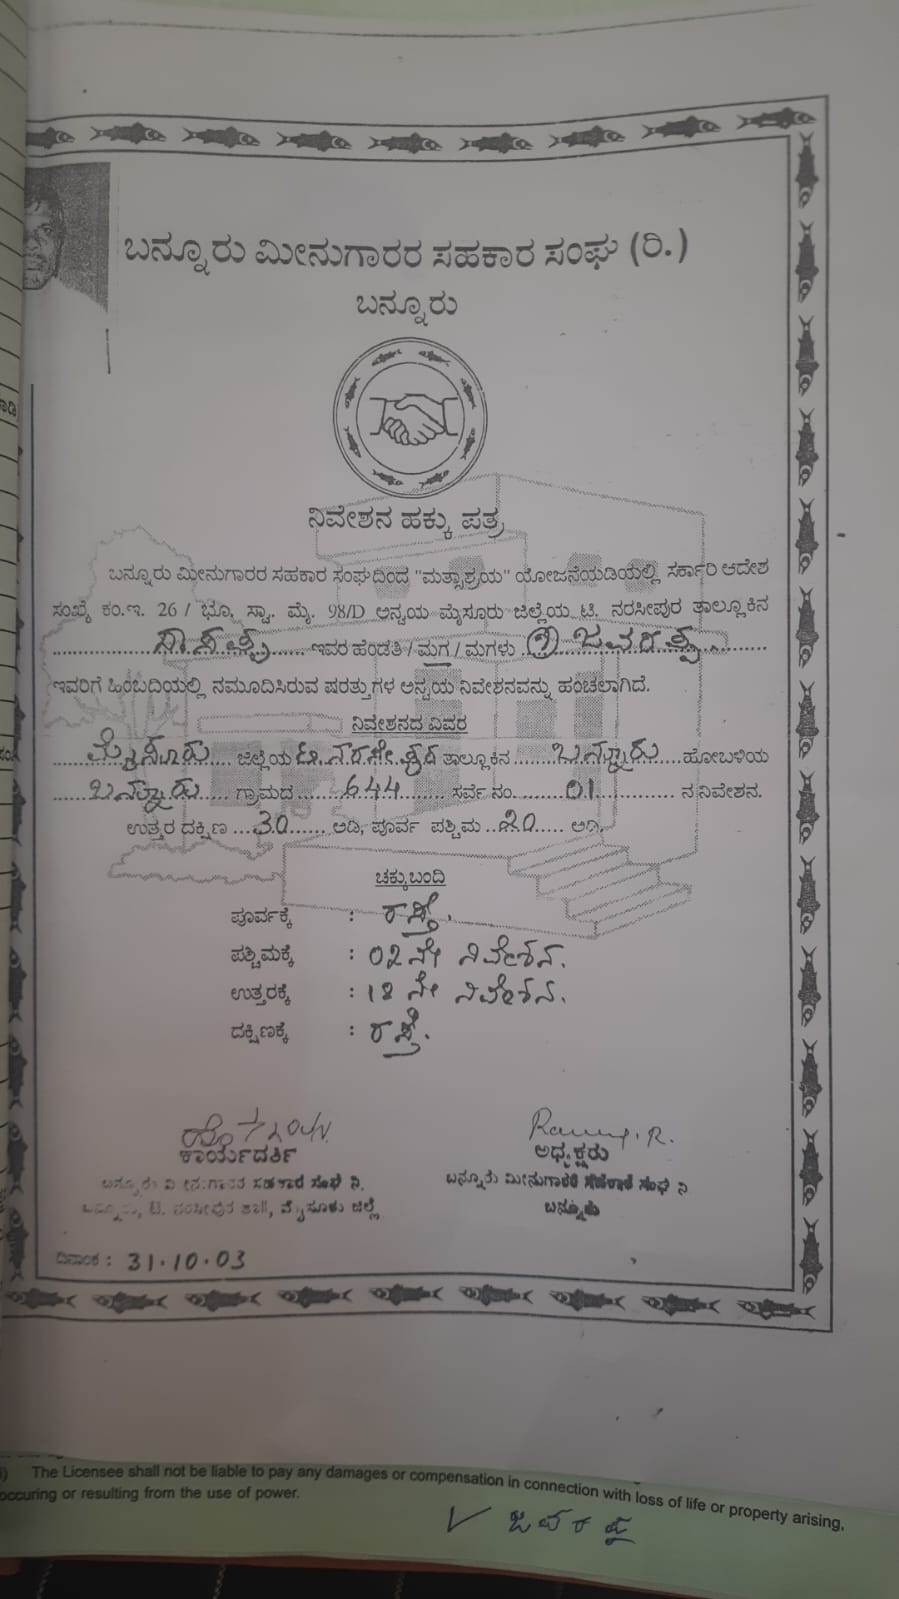 ಬನ್ನೂರು ಮೀನುಗಾರರ ಸಹಕಾರ ಸಂಘ (ರಿ.)
ಬನ್ನೂರು
ನಿವೇಶನ ಹಕ್ಕು ಪತ್ರ
ಬನ್ನೂರು ಮೀನುಗಾರರ ಸಹಕಾರ ಸಂಘದಿಂದ "ಮತ್ಸಾಶ್ರಯ" ಯೋಜನೆಯಡಿಯಲ್ಲಿ ಸರ್ಕಾರಿ ಆದೇಶ
ಸಂಖ್ಯೆ ಕಂ.ಇ. 26 / ಭೂ. ಸ್ವಾ. ಮೈ. 98/D ಅನ್ವಯ ಮೈಸೂರು ಜಿಲ್ಲೆಯ ಟಿ. ನರಸೀಪುರ ತಾಲ್ಲೂಕಿನ
ಇವರ ಹೆಂಡತಿ / ಮಗ / ಮಗಳು
ಇವರಿಗೆ ಹಿಂಬದಿಯಲ್ಲಿ ನಮೂದಿಸಿರುವ ಷರತ್ತುಗಳ ಅನ್ವಯ ನಿವೇಶನವನ್ನು ಹಂಚಲಾಗಿದೆ.
ನಿವೇಶನದ ವಿವರ
ಮೈಸೂರು ಜಿಲ್ಲೆಯ ತಾಲ್ಲೂಕಿನ ಬನ್ನೂರು ಹೋಬಳಿಯ
ಬನ್ನೂರು ಗ್ರಾಮದ 644 ಸರ್ವೆ ನಂ. 01 ನ ನಿವೇಶನ.
ಉತ್ತರ ದಕ್ಷಿಣ 30 ಅಡಿ, ಪೂರ್ವ ಪಶ್ಚಿಮ 20 ಅಡಿ.
ಚಕ್ಕುಬಂದಿ
ಪೂರ್ವಕ್ಕೆ : ರಸ್ತೆ.
ಪಶ್ಚಿಮಕ್ಕೆ : 02 ನೇ ನಿವೇಶನ.
ಉತ್ತರಕ್ಕೆ : 18 ನೇ ನಿವೇಶನ.
ದಕ್ಷಿಣಕ್ಕೆ : ರಸ್ತೆ.
ಕಾರ್ಯದರ್ಶಿ
ಬನ್ನೂರು ಮೀನುಗಾರರ ಸಹಕಾರ ಸಂಘ ನಿ.
ಬನ್ನೂರು, ಟಿ. ನರಸೀಪುರ ತಾ||, ಮೈಸೂರು ಜಿಲ್ಲೆ
ಅಧ್ಯಕ್ಷರು
ಬನ್ನೂರು ಮೀನುಗಾರರ ಸಹಕಾರ ಸಂಘ ನಿ
ಬನ್ನೂರು
ದಿನಾಂಕ : 31.10.03
The Licensee shall not be liable to pay any damages or compensation in connection with loss of life or property arising,
occuring or resulting from the use of power.